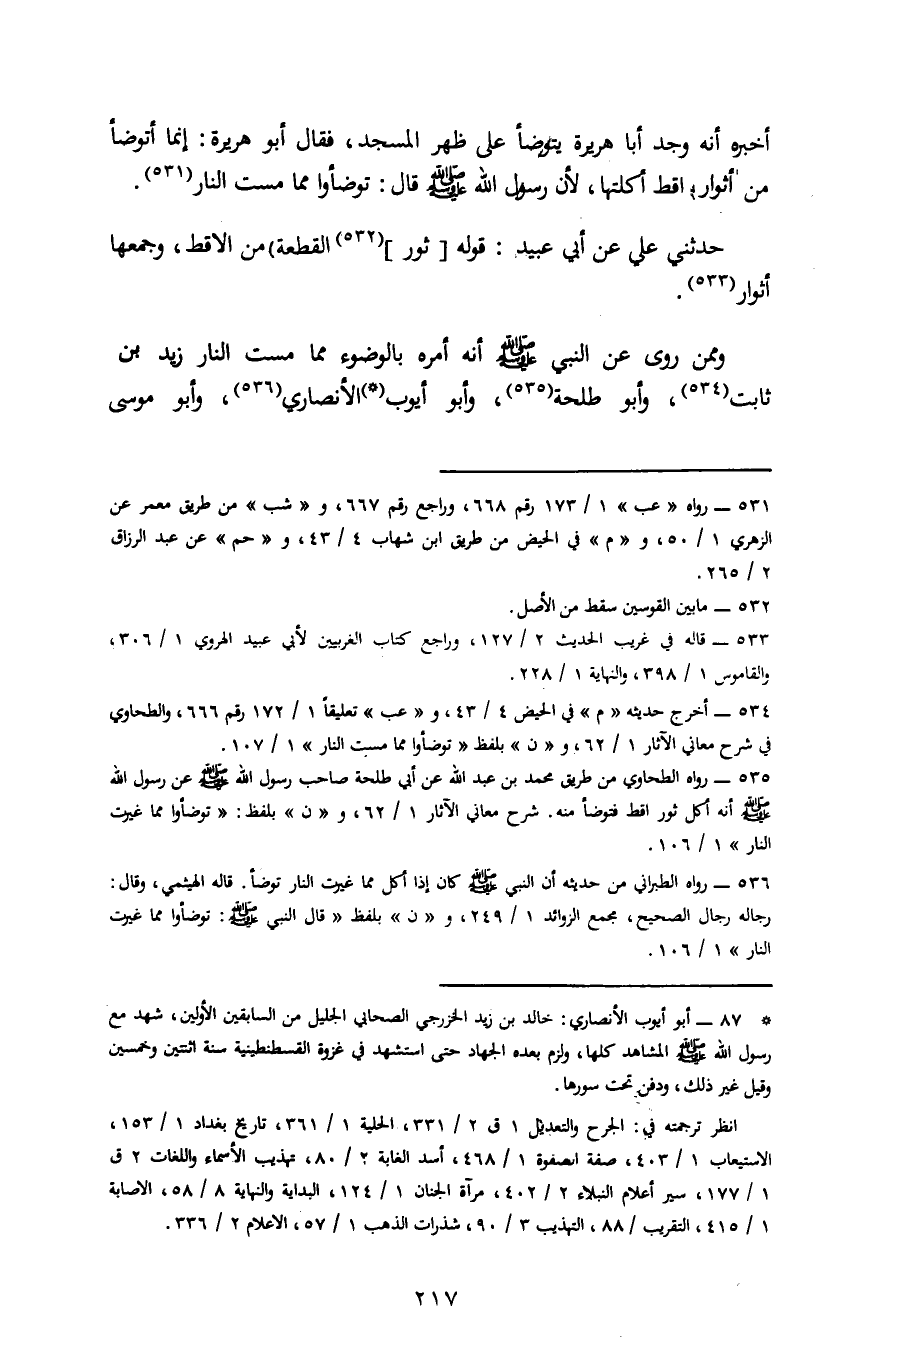 أخبره أنه وجد أبا هريرة يتوضأ على ظهر المسجد، فقال أبو هريرة: إنما أتوضأ
من أثوار اقط أكلتها، لأن رسول الله ﷺ قال: توضأوا مما مست النار(٥٣١).
حدثني علي عن أبي عبيد : قوله [ ثور ](٥٣٢) القطعة) من الاقط، وجمعها
أثوار(٥٣٣).
وممن روى عن النبي ﷺ أنه أمره بالوضوء مما مست النار زيد بن
ثابت(٥٣٤)، وأبو طلحة(٥٣٥)، وأبو أيوب(*) الأنصاري(٥٣٦)، وأبو موسى
٥٣١ ــ رواه « عب » ١ / ١٧٣ رقم ٦٦٨، وراجع رقم ٦٦٧، و « شب » من طريق معمر عن
الزهري ١ / ٥٠، و « م » في الحيض من طريق ابن شهاب ٤ / ٤٣، و « حم » عن عبد الرزاق
٢ / ٢٦٥.
٥٣٢ ــ مابين القوسين سقط من الأصل.
٥٣٣ ــ قاله في غريب الحديث ٢ / ١٢٧، وراجع كتاب الغريبين لأبي عبيد الهروي ١ / ٣٠٦،
والقاموس ١ / ٣٩٨، والنهاية ١ / ٢٢٨.
٥٣٤ ــ أخرج حديثه « م » في الحيض ٤ / ٤٣، و « عب » تعليقاً ١ / ١٧٢ رقم ٦٦٦، والطحاوي
في شرح معاني الآثار ١ / ٦٢، و « ن » بلفظ « توضأوا مما مست النار » ١ / ١٠٧.
٥٣٥ ــ رواه الطحاوي من طريق محمد بن عبد الله عن أبي طلحة صاحب رسول الله ﷺ عن رسول الله
ﷺ أنه أكل ثور اقط فتوضأ منه. شرح معاني الآثار ١ / ٦٢، و « ن » بلفظ: « توضأوا مما غيرت
النار » ١ / ١٠٦.
٥٣٦ ــ رواه الطبراني من حديثه أن النبي ﷺ كان إذا أكل مما غيرت النار توضأ. قاله الهيثمي، وقال:
رجاله رجال الصحيح، مجمع الزوائد ١ / ٢٤٩، و « ن » بلفظ « قال النبي ﷺ: توضأوا مما غيرت
النار » ١ / ١٠٦.
* ٨٧ ــ أبو أيوب الأنصاري: خالد بن زيد الخزرجي الصحابي الجليل من السابقين الأولين، شهد مع
رسول الله ﷺ المشاهد كلها، ولزم بعده الجهاد حتى استشهد في غزوة القسطنطينية سنة اثنتين وخمسين
وقيل غير ذلك، ودفن تحت سورها.
انظر ترجمته في: الجرح والتعديل ١ ق ٢ / ٣٣١، الحلية ١ / ٣٦١، تاريخ بغداد ١ / ١٥٣،
الاستيعاب ١ / ٤٠٣، صفة الصفوة ١ / ٤٦٨، أسد الغابة ٢ / ٨٠، تهذيب الأسماء واللغات ٢ ق
١ / ١٧٧، سير أعلام النبلاء ٢ / ٤٠٢، مرآة الجنان ١ / ١٢٤، البداية والنهاية ٨ / ٥٨، الاصابة
١ / ٤١٥، التقريب / ٨٨، التهذيب ٣ / ٩٠، شذرات الذهب ١ / ٥٧، الاعلام ٢ / ٣٣٦.
٢١٧